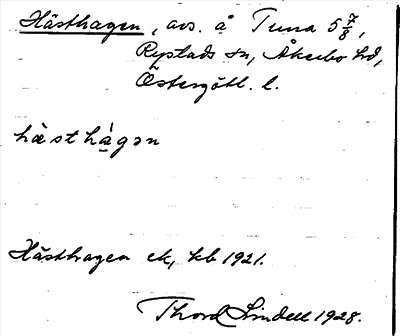 Hästhagen, avs. å Tuna 5 7/8,
Rystads sn, Åkerbo hd,
Östergötl. l.
hàsthágən
Hästhagen ek, kb 1921.
Thord Lindell 1928.